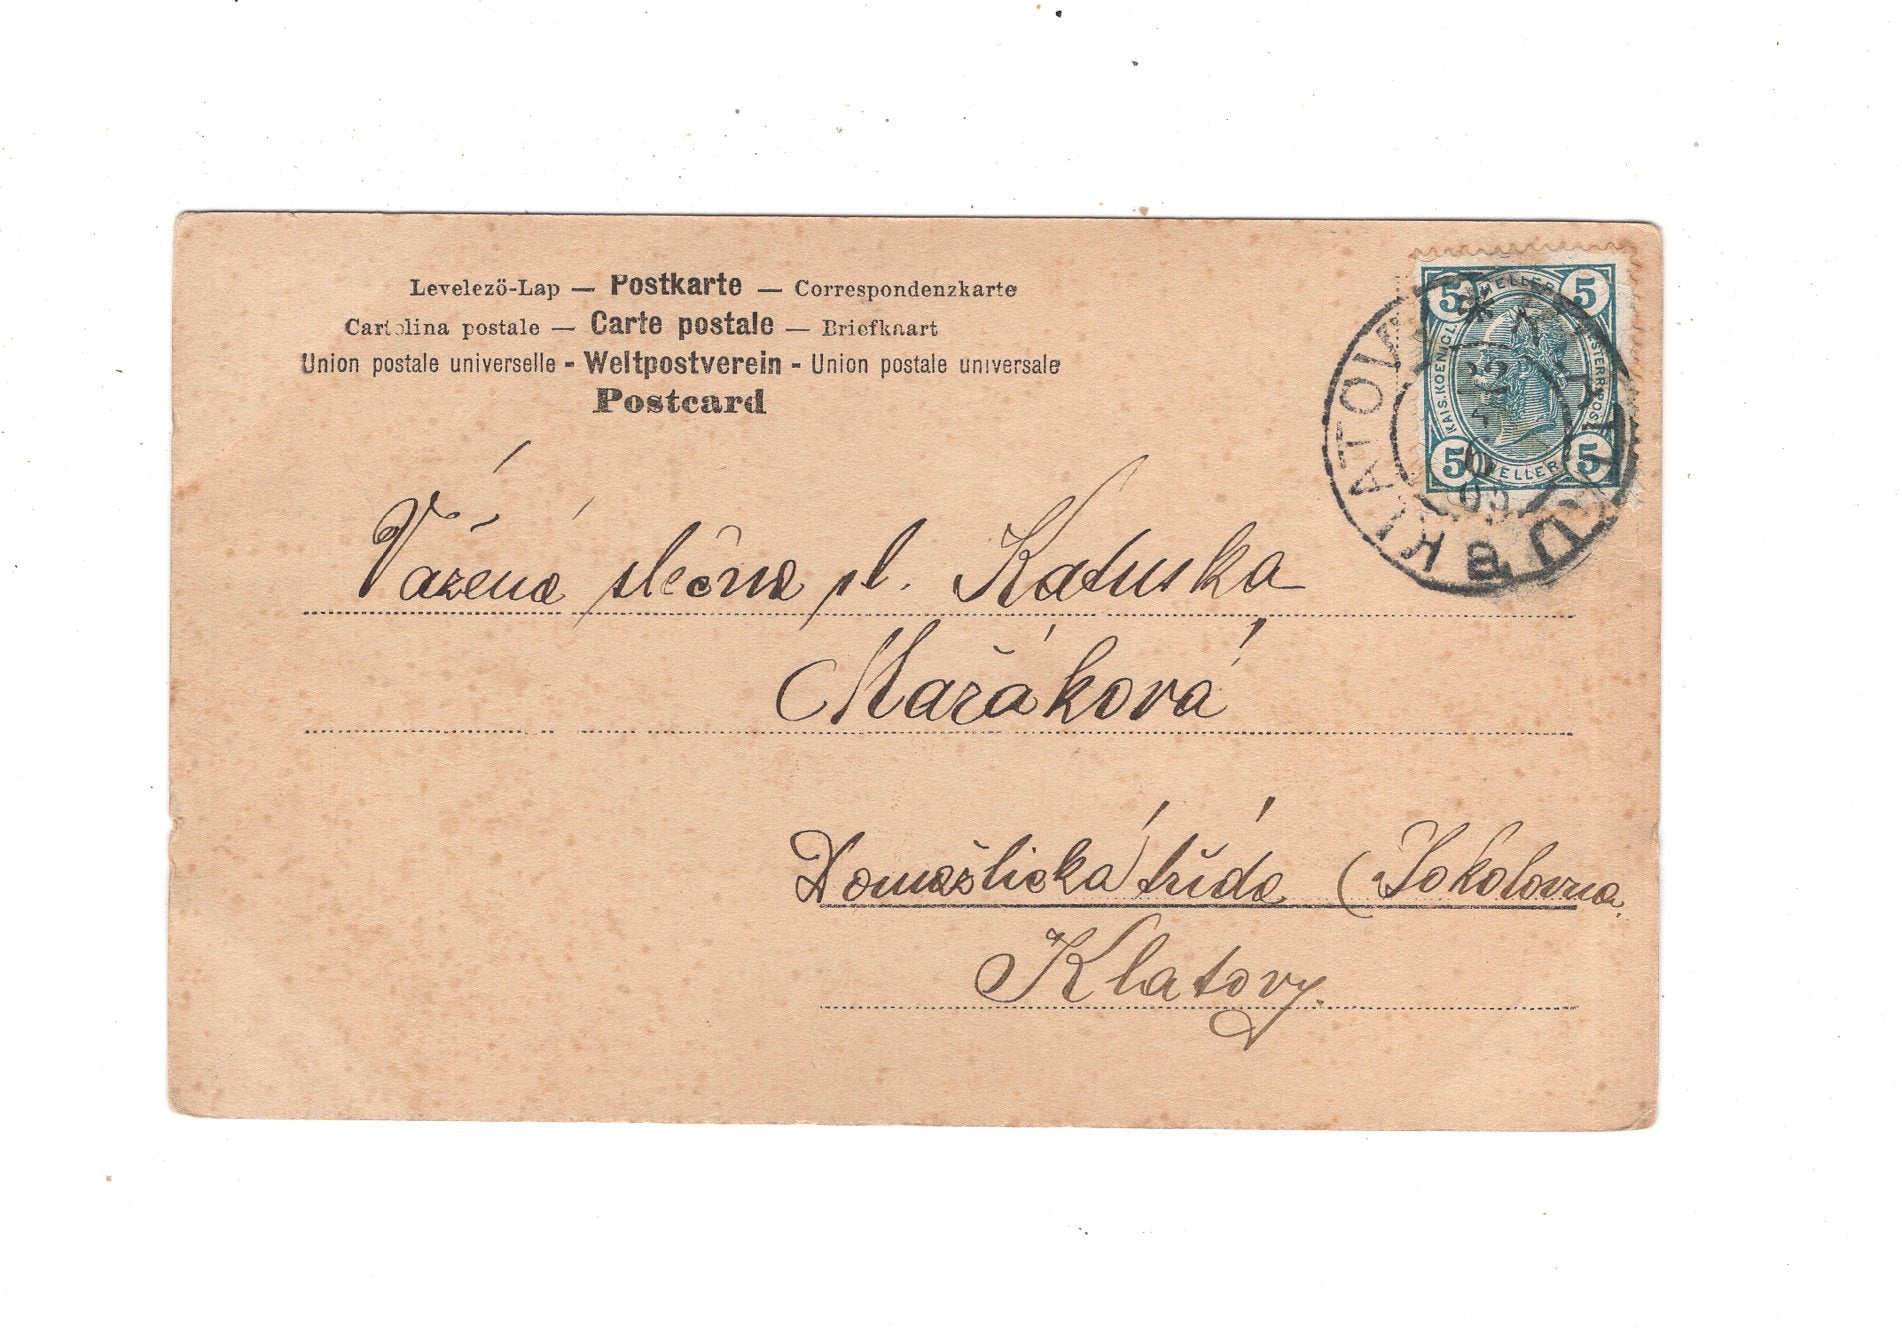 Levelező-Lap — Postkarte — Correspondenzkarte
Cartolina postale — Carte postale — Briefkaart
Union postale universelle - Weltpostverein - Union postale universale
Postcard
5 HELLER 5
KAIS. KOENIGL. OESTERR. POST
5 HELLER 5
KLATOVY
KLATTAU
22
Vážená slečna sl. Katuska
Mařáková
Domažlická třída (Sokolovna
Klatovy.